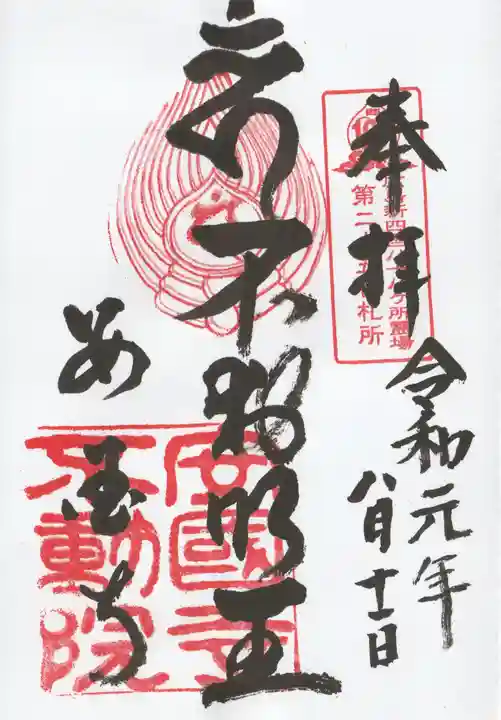 奉拝
新四国八十八ヶ所霊場
第二 札所
令和元年
八月十二日
不動明王
安国寺
安國寺
不動院